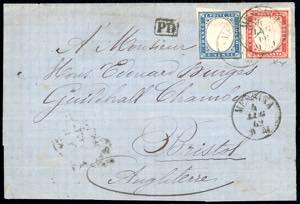 PD
A Monsieur
Hons Edouard Burges
Guildhall Chambers
Bristol
Angleterre
MESSINA
4
LUG
62